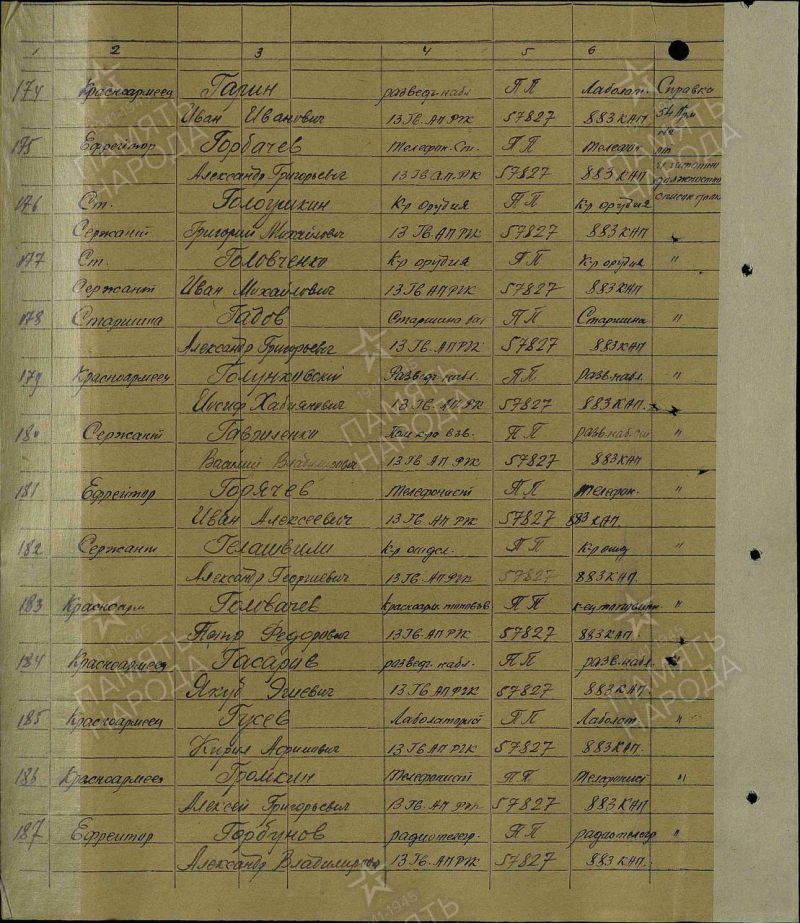 1 2 3 4 5 6
174 Красноармеец Гарин разведч-набл ПП Лаболат. Справка
Иван Иванович 13 Гв. АП РГК 57827 883 КАП
175 Ефрейтор Горбачев Телефон. Ст. ПП Телефон
Александр Григорьевич 13 Гв АП. РГК 57827 883 КАП
176 Ст. Гологушкин К-р орудия ПП К-р орудия
Сержант Григорий Михайлович 13 Гв. АП РГК 57827 883 КАП "
177 Ст. Головченко К-р орудия ПП К-р орудия "
Сержант Иван Михайлович 13 Гв АП РГК 57827 883 КАП
178 Старшина Гадов Старшина бат ПП Старшина "
Александр Григорьевич 13 Гв. АП РГК 57827 883 КАП
179 Красноармеец Голунковский Разведч-набл. ПП Разв.набл. "
Иосиф 13 Гв. АП РГК 57827 883 КАП.
180 Сержант Гавриленко взв. ПП "
Василий Владимирович 13 Гв АП РГК 57827 883 КАП
181 Ефрейтор Горячев Телефонист ПП Телефон. "
Иван Алексеевич 13 Гв АП РГК 57827 883 КАП.
182 Сержант Гелашвили К-р отдел. ПП К-р отд "
Александр Георгиевич 13 Гв. АП РГК 57827 883 КАП.
183 Красноарм Головачев ПП "
Федорович 13 Гв АП РГК 57827 883 КАП
184 Красноармеец Гасарав разведч. набл. ПП разв. набл.
Якуб 13 Гв АП РГК 57827 883 КАП.
185 Красноармеец Гусев Лаболаторист ПП Лаболат "
Кирил 13 Гв АП РГК 57827 883 КАП.
186 Красноармеец Громкин Телефонист ПП Телефонист "
Алексей Григорьевич 13 Гв. АП РГК 57827 883 КАП
187 Ефрейтор Горбунов радиотелегр. ПП радиотелегр "
Александр Владимирович 13 Гв. АП РГК 57827 883 КАП.
ПАМЯТЬ НАРОДА
1941-1945